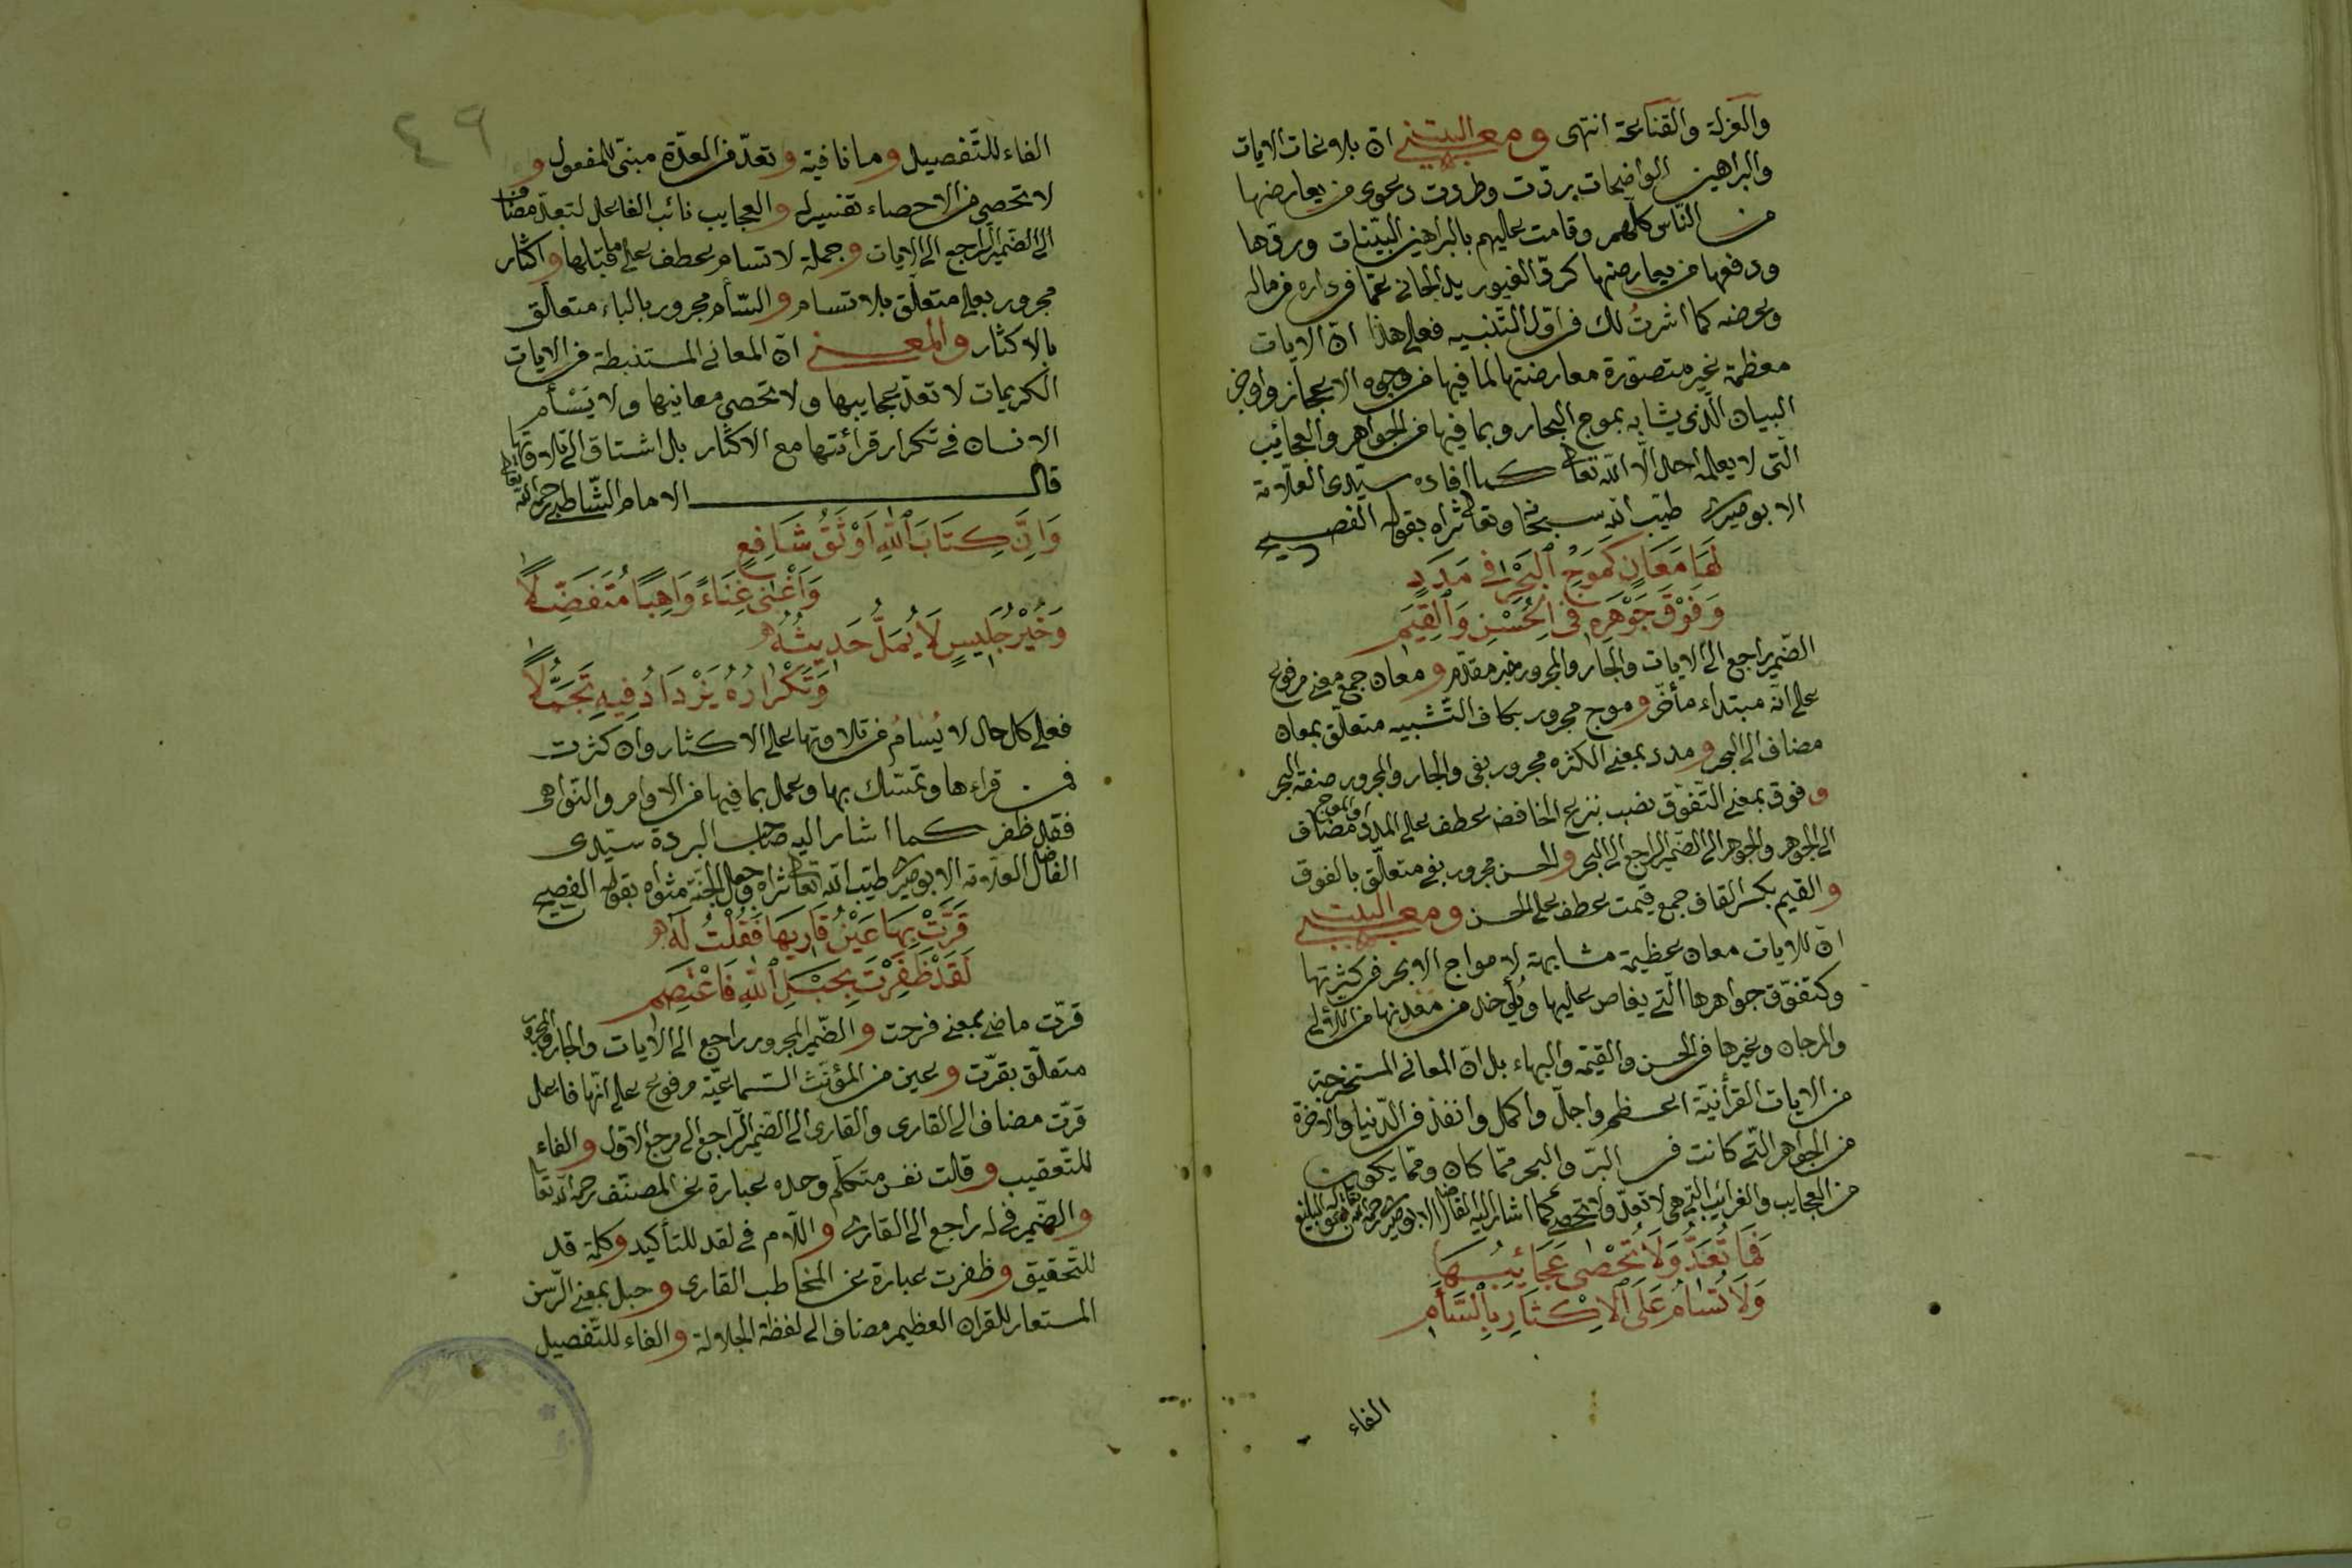 والعزلة والقناعة انتهى ومعنى البيت ان بلاغات الايات
والبراهين الواضحات ردّت وطردت دعوى من يعارضها
من النّاس كلّهم وقامت عليهم بالبراهين البيّنات وردّها
ودفعها من يعارضها كردّ الغيور يد الجانى عمّا فى داره من ماله
وعرضه كما اشرتُ لك فى اوّل التّنبيه فعلى هذا انّ الايات
معظمة غير متصوّرة معارضتها لما فيها من وجوه الاعجاز واوضح
البيان الّذى يشابه بموج البحار وبما فيها من الجواهر والعجائب
الّتى لا يعلمه احد الّا الله تعالى كما افاده سيّدى العلّامة
الابوصيرى طيّب الله سبحانه وتعالى ثراه بقوله الفصيح
لَهَا مَعَانٍ كَمَوْجِ الْبَحْرِ فِى مَدَدٍ
وَفَوْقَ جَوْهَرِهِ فِى الْحُسْنِ وَالْقِيَمِ
الضّمير راجع الى الايات والجار والمجرور خبر مقدّم ومعان جمع معنى مرفوع
على انّه مبتداء مأخّر وموج مجرور بكاف التّشبيه متعلّق بمعان
مضاف الى البحر ومدد بمعنى الكثره مجرور بفى والجار والمجرور صفة البحر
وفوق بمعنى التّفوّق نصب بنزع الخافض عطف على المدد او الموج مضاف
الى الجوهر والجوهر الى الضّمير الراجع الى البحر والحسن مجرور بفى متعلّق بالفوق
والقيم بكسر القاف جمع قيمت عطف على الحسن ومعنى البيت
انّ للايات معان عظيمة مشابهة لامواج الابحر فى كثرتها
وكتفوّق جواهرها الّتى يغاص عليها ويُؤخذ من معدنها من اللآلى
والمرجان وغيرها فى الحسن والقيمة والبهاء بل انّ المعانى المستخرجة
من الايات القرأنيّة اعظم واجلّ واكمل وانفذ فى الدّنيا والاخرة
من الجواهر الّتى كانت فى البرّ والبحر ممّا كان وممّا يكون
من العجايب والغرائب الّتى هى لا تعدّ ولا تحصى كما اشار اليه الفاضل الابوصيرى رحمه الله تعالى بقوله البليغ
فَمَا تُعَدُّ وَلَا تُحْصٰى عَجَائِبُهَا
وَلَا تُسَامُ عَلَى الْاِكْثَارِ بِالسَّأَمِ
الفاء
٤٩
الفاء للتّفصيل وما نافية وتعدّ من العدّة مبنىّ للمفعول و
لا تحصى من الاحصاء تفسيرله والعجايب نائب الفاعل لتعدّ مضاف
الى الضّمير الراجع الى الايات وجملة لا تسام عطف على ما قبلها واكثار
مجرور بعلى متعلّق بلا تسام والسّأم مجرور بالباء متعلّق
بالاكثار والمعنى انّ المعانى المستنبطة من الايات
الكريمات لا تعدّ عجايبها ولا تحصى معانيها ولا يَسْأم
الانسان فى تكرار قرائتها مع الاكثار بل اشتاق الى تلاوتها
قال الامام الشّاطبى رحمه الله تعالى
وَاِنَّ كِتَابَ اللهِ اَوْثَقُ شَافِعٍ
وَاَغْنٰى غِنَاءً وَاهِبًا مُتَفَضِّلًا
وَخَيْرُ جَلِيسٍ لَا يُمَلُّ حَدِيثُهُ
وَتَكْرَارُهُ يَزْدَادُ فِيهِ تَجَمُّلًا
فعلى كل حال لا يُسَامُ من تلاوتها على الاكثار وان كثرت
فمن قراءها وتمسّك بها وعمل بما فيها من الاوامر والنّواهى
فقد ظفر كما اشار اليه صاحب البردة سيّدى
الفاضل العلّامة الابوصيرى طيّب الله تعالى ثراه وجعل الجنّة مثواه بقوله الفصيح
قَرَّتْ بِهَا عَيْنُ قَارِيهَا فَقُلْتُ لَهُ
لَقَدْ ظَفِرْتَ بِحَبْلِ اللهِ فَاعْتَصِمِ
قرّت ماضى بمعنى فرحت والضّمير المجرور راجع الى الايات والجار والمجرور
متعلّق بقرّت وعين من المؤنّث السّماعيّة مرفوع على انّها فاعل
قرّت مضاف الى القارى والقارى الى الضّمير الراجع الى مرجع الاوّل والفاء
للتّعقيب وقالت نفس متكلّم وحده عبارة عن المصنّف رحمه الله تعالى
والضّمير فى له راجع الى القارى واللّام فى لقد للتأكيد وكلمة قد
للتّحقيق وظفرت عبارة عن المخاطب القارى وحبل بمعنى الرّسن
المستعار للقران العظيم مضاف الى لفظة الجلالة والفاء للتّفصيل